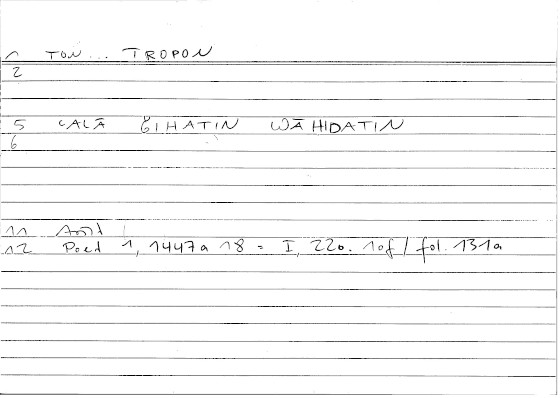 1 TON... TROPON
2
5 CALĀ ǦIHATIN WĀHIDATIN
6
11 Arist
12 Poet 1, 1447a 18 = I, 220. 10f / fol. 131a